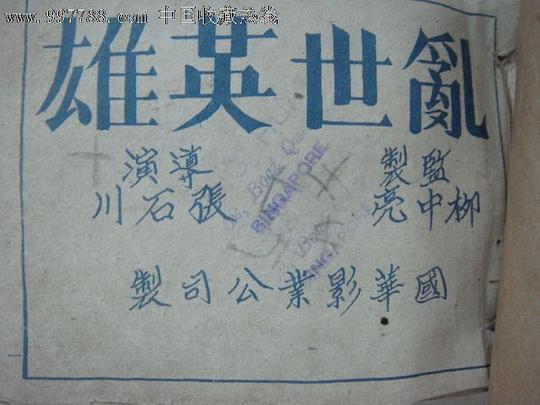 www.997788.com 中国收藏热线
亂世英雄
監製
柳中亮
導演
張石川
國華影業公司製
SINGAPORE